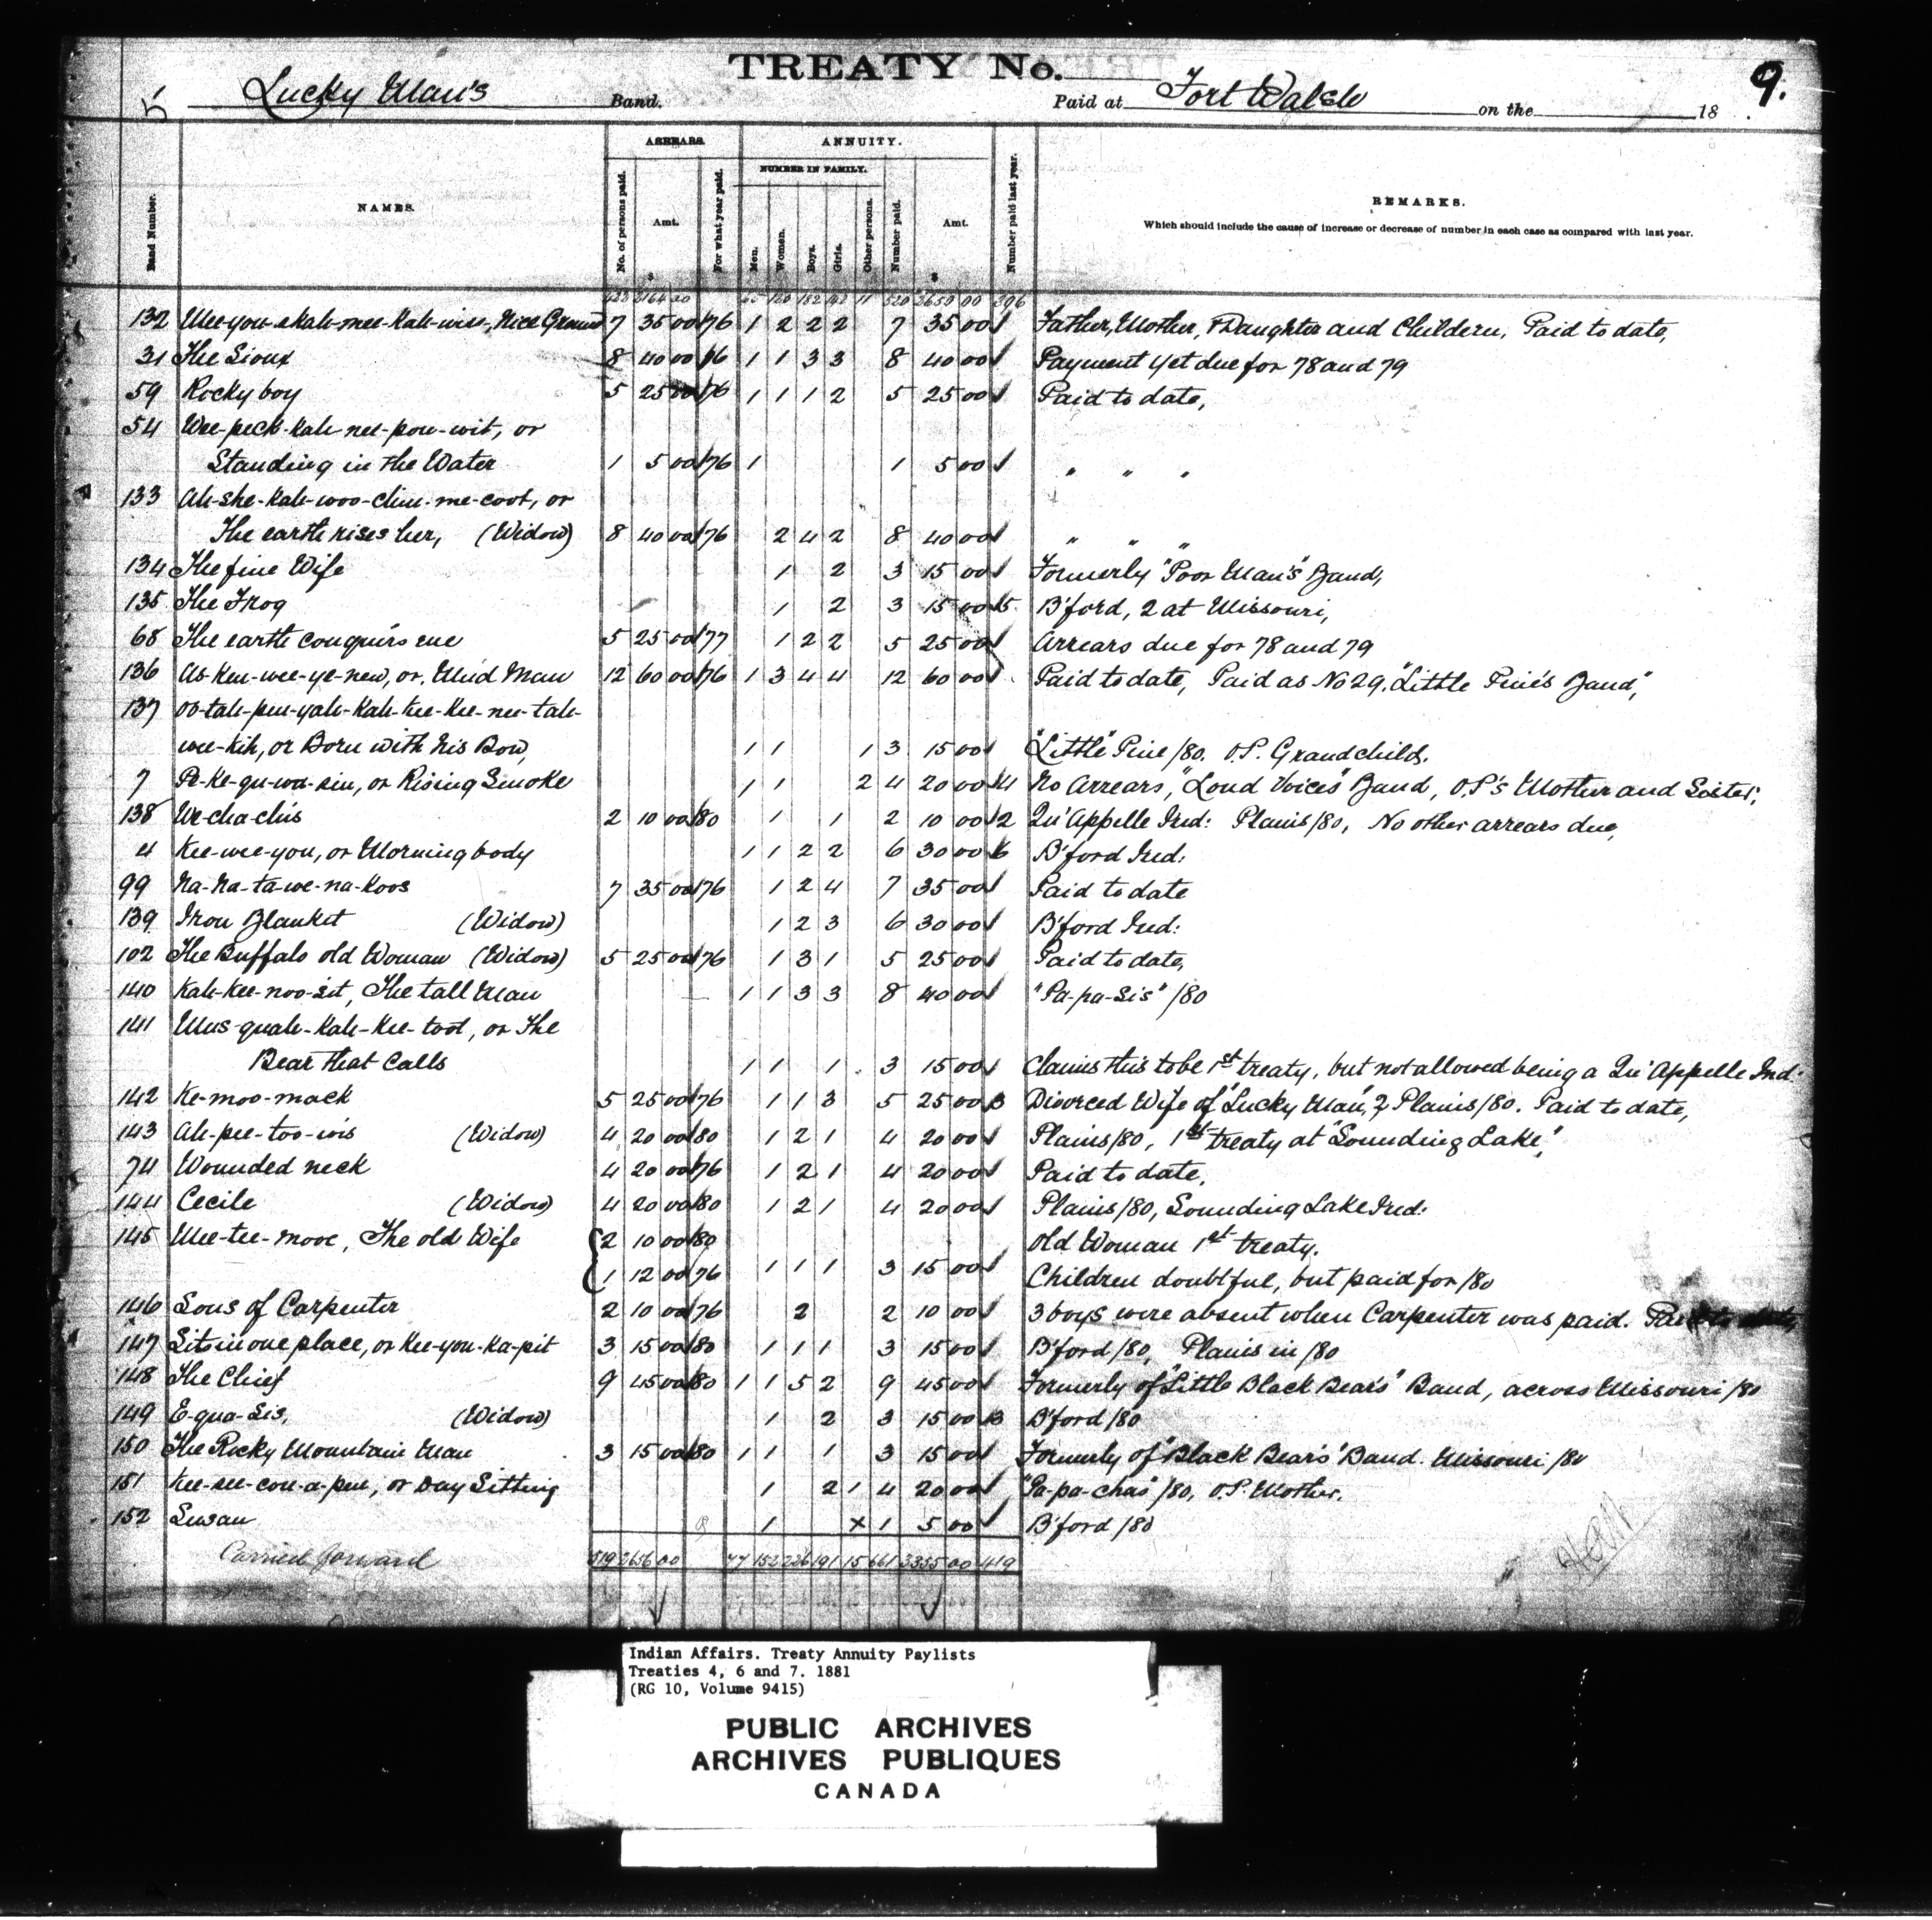 TREATY No.
9.
5 Lucky Man's Band. Paid at Fort Walsh on the 18
ARREARS. ANNUITY.
NUMBER IN FAMILY.
Band Number. NAMES. No. of persons paid. Amt. For what year paid. Men. Women. Boys. Girls. Other persons. Number paid. Amt. Number paid last year. REMARKS.
Which should include the cause of increase or decrease of number in each case as compared with last year.
$ $
422 2164 00 65 120 182 142 11 520 2650 00 396
132 Mee-you-skah-mee-kah-wis, Nice Ground 7 35 00 /76 1 2 2 2 7 35 00 Father, Mother, Daughter and Childern, Paid to date,
31 The Sioux 8 40 00 /76 1 1 3 3 8 40 00 Payment yet due for 78 and 79
59 Rocky boy 5 25 00 /76 1 1 1 2 5 25 00 Paid to date,
54 Wee-peck-kah-nee-pou-wit, or
Standing in the Water 1 5 00 /76 1 1 5 00 " " "
133 Ah-she-kah-woo-chin-me-coot, or
The earth rises her, (Widow) 8 40 00 /76 2 4 2 8 40 00 " " "
134 The fine Wife 1 2 3 15 00 Formerly "Poor Man's" Band,
135 The Frog 1 2 3 15 00 5 B'ford, 2 at Missouri,
68 The earth conquers me 5 25 00 /77 1 2 2 5 25 00 Arrears due for 78 and 79
136 As-Keu-wee-ye-new, or, Mud Man 12 60 00 /76 1 3 4 4 12 60 00 Paid to date, Paid as No 29, "Little Pine's Band,"
137 oo-tah-peu-yah-kah-kee-kee-nee-tah-
wee-kih, or Born with his Bow, 1 1 1 3 15 00 "Little" Pine /80. O.P. Grandchild.
7 Pe-ke-qu-wa-sin, or Rising Smoke 1 1 2 4 20 00 4 No Arrears, "Loud Voices" Band, O.P's Mother and Sister,
138 We-cha-chis 2 10 00 /80 1 1 2 10 00 2 Qu'Appelle Ind: Plains /80, No other arrears due,
4 Kee-wee-you, or Morning body 1 1 2 2 6 30 00 6 B'ford Ind:
99 Na-Na-ta-we-na-koos 7 35 00 /76 1 2 4 7 35 00 Paid to date
139 Iron Blanket (Widow) 1 2 3 6 30 00 B'ford Ind:
102 The Buffalo old Woman (Widow) 5 25 00 /76 1 3 1 5 25 00 Paid to date,
140 Kah-kee-noo-sit, The tall Man 1 1 3 3 8 40 00 "Pa-pa-sis" /80
141 Mus-quah-kah-kee-toot, or The
Bear that Calls 1 1 1 3 15 00 Claims this to be 1st treaty, but not allowed being a Qu'Appelle Ind.
142 Ke-moo-mack 5 25 00 /76 1 1 3 5 25 00 3 Divorced Wife of "Lucky Man", 2 Plains /80. Paid to date,
143 Ah-pee-too-wis (Widow) 4 20 00 /80 1 2 1 4 20 00 Plains /80, 1st treaty at "Sounding Lake,"
74 Wounded neck 4 20 00 /76 1 2 1 4 20 00 Paid to date,
144 Cecile (Widow) 4 20 00 /80 1 2 1 4 20 00 Plains /80, Sounding Lake Ind:
145 Mee-tee-mooe, The old Wife 2 10 00 /80 old Woman 1st treaty.
1 12 00 /76 1 1 1 3 15 00 Children doubtful, but paid for /80
146 Sons of Carpenter 2 10 00 /76 2 2 10 00 3 boys were absent when Carpenter was paid. Paid to date,
147 Sits in one place, or Kee-you-ka-pit 3 15 00 /80 1 1 1 3 15 00 B'ford /80, Plains in /80
148 The Chief 9 45 00 /80 1 1 5 2 9 45 00 Formerly of "Little Black Bear's" Band, across Missouri /80
149 E-qua-sis, (Widow) 1 2 3 15 00 3 B'ford /80
150 The Rocky Mountain Man 3 15 00 /80 1 1 1 3 15 00 Formerly of "Black Bear's" Band. Missouri /80
151 Kee-see-cou-a-peu, or Day Sitting 1 2 1 4 20 00 "Pa-pa-chas" /80, O.P. Mother.
152 Susan 1 x 1 5 00 B'ford /80
Carried forward 519 2656 00 77 152 226 191 15 661 3355 00 419
Indian Affairs. Treaty Annuity Paylists
Treaties 4, 6 and 7. 1881
(RG 10, Volume 9415)
PUBLIC ARCHIVES
ARCHIVES PUBLIQUES
CANADA